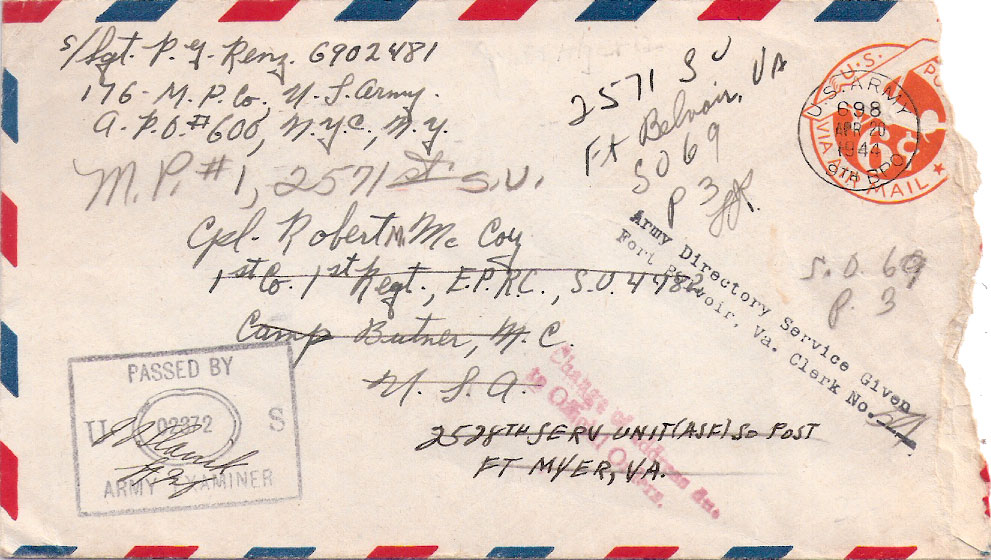 S/Sgt. P. G. Renz. 6902481
176 - M.P. Co., U.S. Army.
A.P.O. #600, N.Y.C., N.Y.
M.P. #1, 2571 st S.U.
2571 SU
Ft Belvoir, VA
SO 69
P 3
U.S. PO
VIA AIR MAIL
6¢
U.S. ARMY
698
APR 20
1944
9TH BPO
Cpl. Robert M. Mc Coy
1st Co. 1st Regt., E.P.R.C., S.O. 4486
Camp Butner, N.C.
U.S.A.
2528TH SERV UNIT (ASF) SO POST
FT MYER, VA.
Army Directory Service Given
Fort Belvoir, Va. Clerk No.
S.O. 69
P. 3
Change of Address due
to Official Orders.
PASSED BY
U 02372 S
ARMY EXAMINER